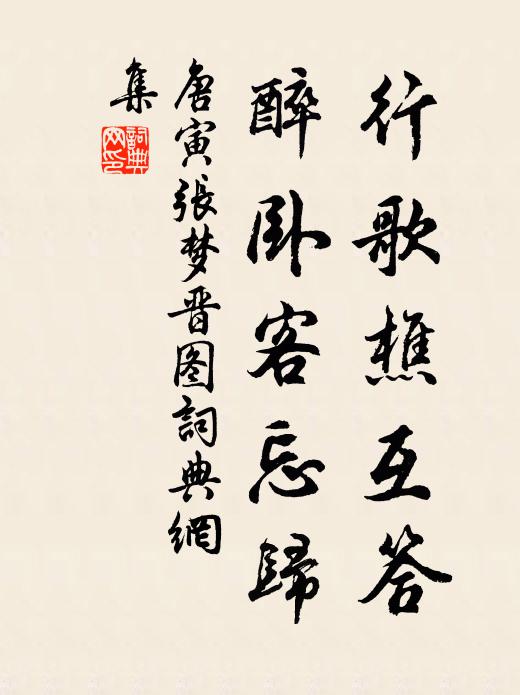 行歌樵互答
醉卧客忘歸
唐寅張梦晋图詞典網
集
詞典網印